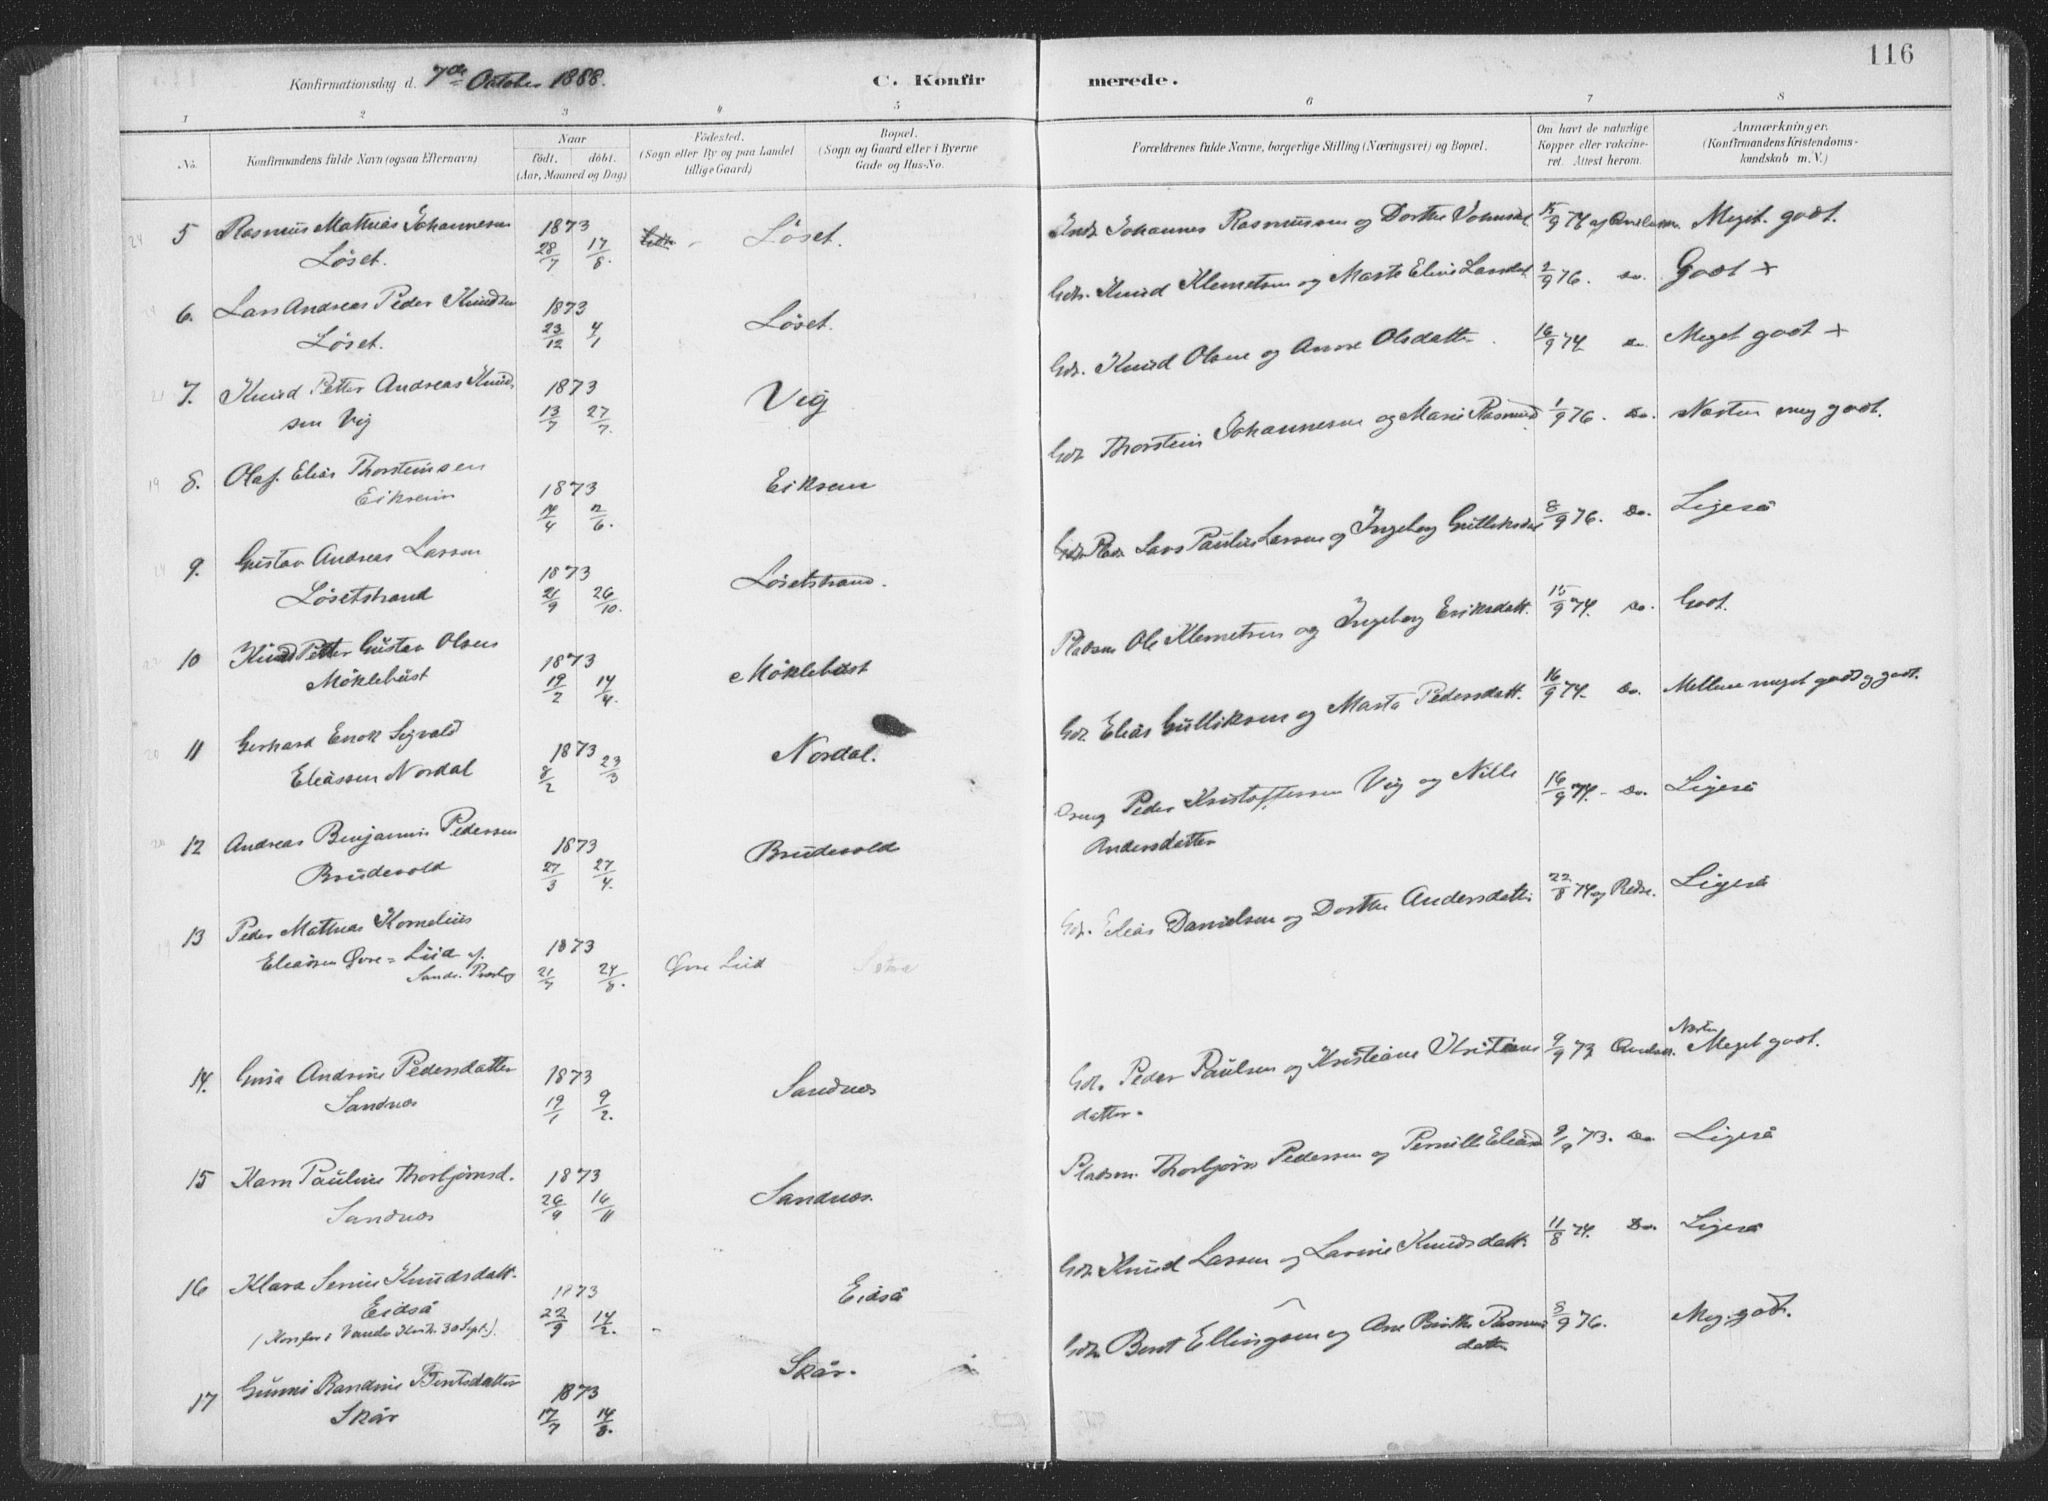 116
Konfirmationsdag d. 7de October 1888.
C. Konfirmerede.
1 2 3 4 5 6 7 8
No.
Konfirmandens fulde Navn (ogsaa Efternavn)
Naar
födt. döbt.
(Aar, Maaned og Dag)
Födested.
(Sogn eller By og paa Landet
tillige Gaard)
Bopæl.
(Sogn og Gaard eller i Byerne
Gade og Hus-No.
Forældrenes fulde Navne, borgerlige Stilling (Næringsvei) og Bopæl.
Om havt de naturlige
Kopper eller vakcine-
ret. Attest herom.
Anmærkninger.
(Konfirmandens Kristendoms-
kundskab m. V.)
5 Rasmus Mathias Johannesen 1873 Löset. Johannes Rasmussen og Dorthe 15/9 74 Meget godt.
Löset. 28/7 17/8
6. Lars Andreas Peder Knudsen 1873 Löset. Gdr. Knud Klemetsen og Marte Eline Larsdat 2/9 76. do. Godt +
Löset. 23/12 4/1
7. Knud Petter Andreas Knud- 1873 Vig Gdr. Knud Olsen og Anne Olsdatter. 16/9 74 do. Meget godt +
sen Vig 13/7 27/7.
8. Olaf Elias Thorsteinsen 1873 Eiksem Gdr. Thorstein Johannesen og Marie Rasmusd 1/9 76. do. Næsten meg godt.
Eiksem 14/4 2/6.
9. Gustav Andreas Larsen 1873 Lösetstrand. Lars Paulus Larsen og Ingeborg Gulliksdat 8/9 76. Do. Ligeså
Lösetstrand 21/9 26/10.
10 Knud Petter Gustav Olsen 1873 Möklebust Pladsm. Ole Klemetsen og Ingeborg Eriksdatt. 15/9 74. do. Godt.
Möklebust 19/2 14/4.
11 Gerhard Enok Sigvald 1873 Nordal. Gdr. Elias Gulliksen og Marta Pedersdatt. 16/9 74. Do. Mellem meget godt og godt.
Eliassen Nordal 8/2 23/3
12 Andreas Benjamin Pedersen 1873 Brudevold Peder Kristoffersen Vig og Nille 16/9 74. Do. Ligeså
Brudevold 27/3 27/4. Andersdatter
13 Peder Mathias Kornelius 1873 Gdr. Elias Danielsen og Dorthe Andersdatt. 22/8 74 Ligeså
Eliassen Øvre=Liid af 21/7 24/8. Øvre Liid
Sande Præstg
14. Gusa Andrine Pedersdatter 1873 Sandnæs Gdr. Peder Paulsen og Kristiane Kristians 9/9 73 Næsten Meget godt.
Sandnæs 19/1 9/2. datter.
15 Karn Pauline Thorbjörnsd. 1873 Sandnæs. Pladsm. Thorbjörn Pedersen og Pernille Eliasd 9/9 73. do Ligeså
Sandnæs 26/9 16/11
16 Klara Serine Knudsdatt. 1873 Eidså Gdr. Knud Larsen og Larsine Knudsdatt. 11/8 74. Do. Ligeså
Eidså 22/9 14/2.
(Konf. i Vanelvs Kirke 30 Sept.).
17 Gunni Randine Bentsdatter 1873 Skår. Gdr. Bent Ellingsen og Ane Birthe Rasmus 8/9 76. Meg. godt.
Skår 17/7 14/8. datter